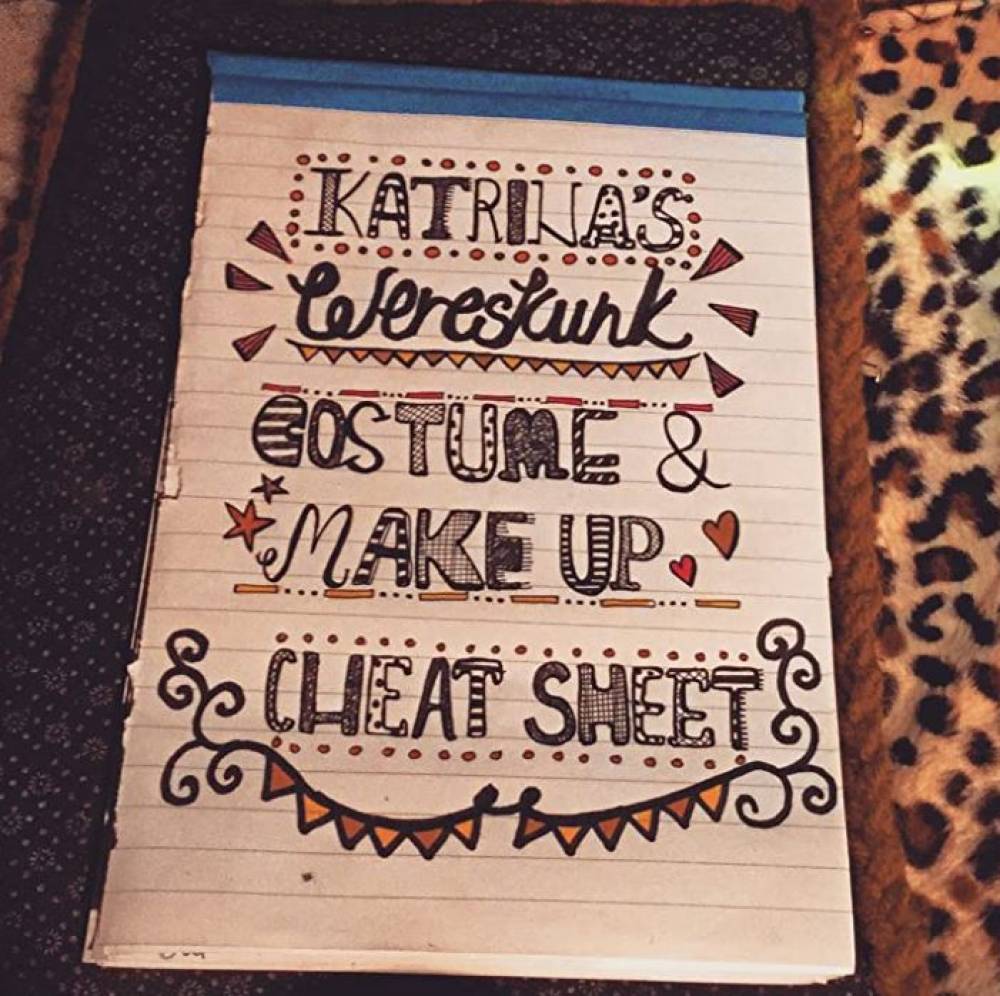 KATRINA'S
Wereskunk
COSTUME &
MAKE UP
CHEAT SHEET